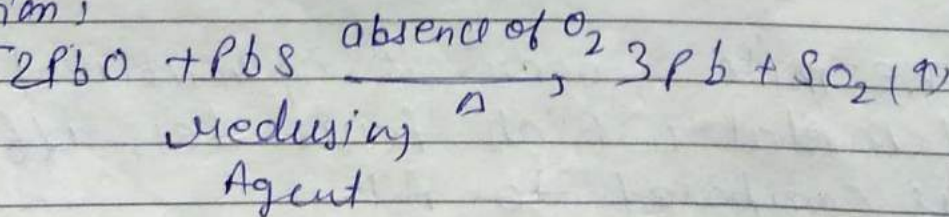 ion,
2PbO + PbS absence of O2 → Δ 3Pb + SO2 (↑)
redusing
Agent